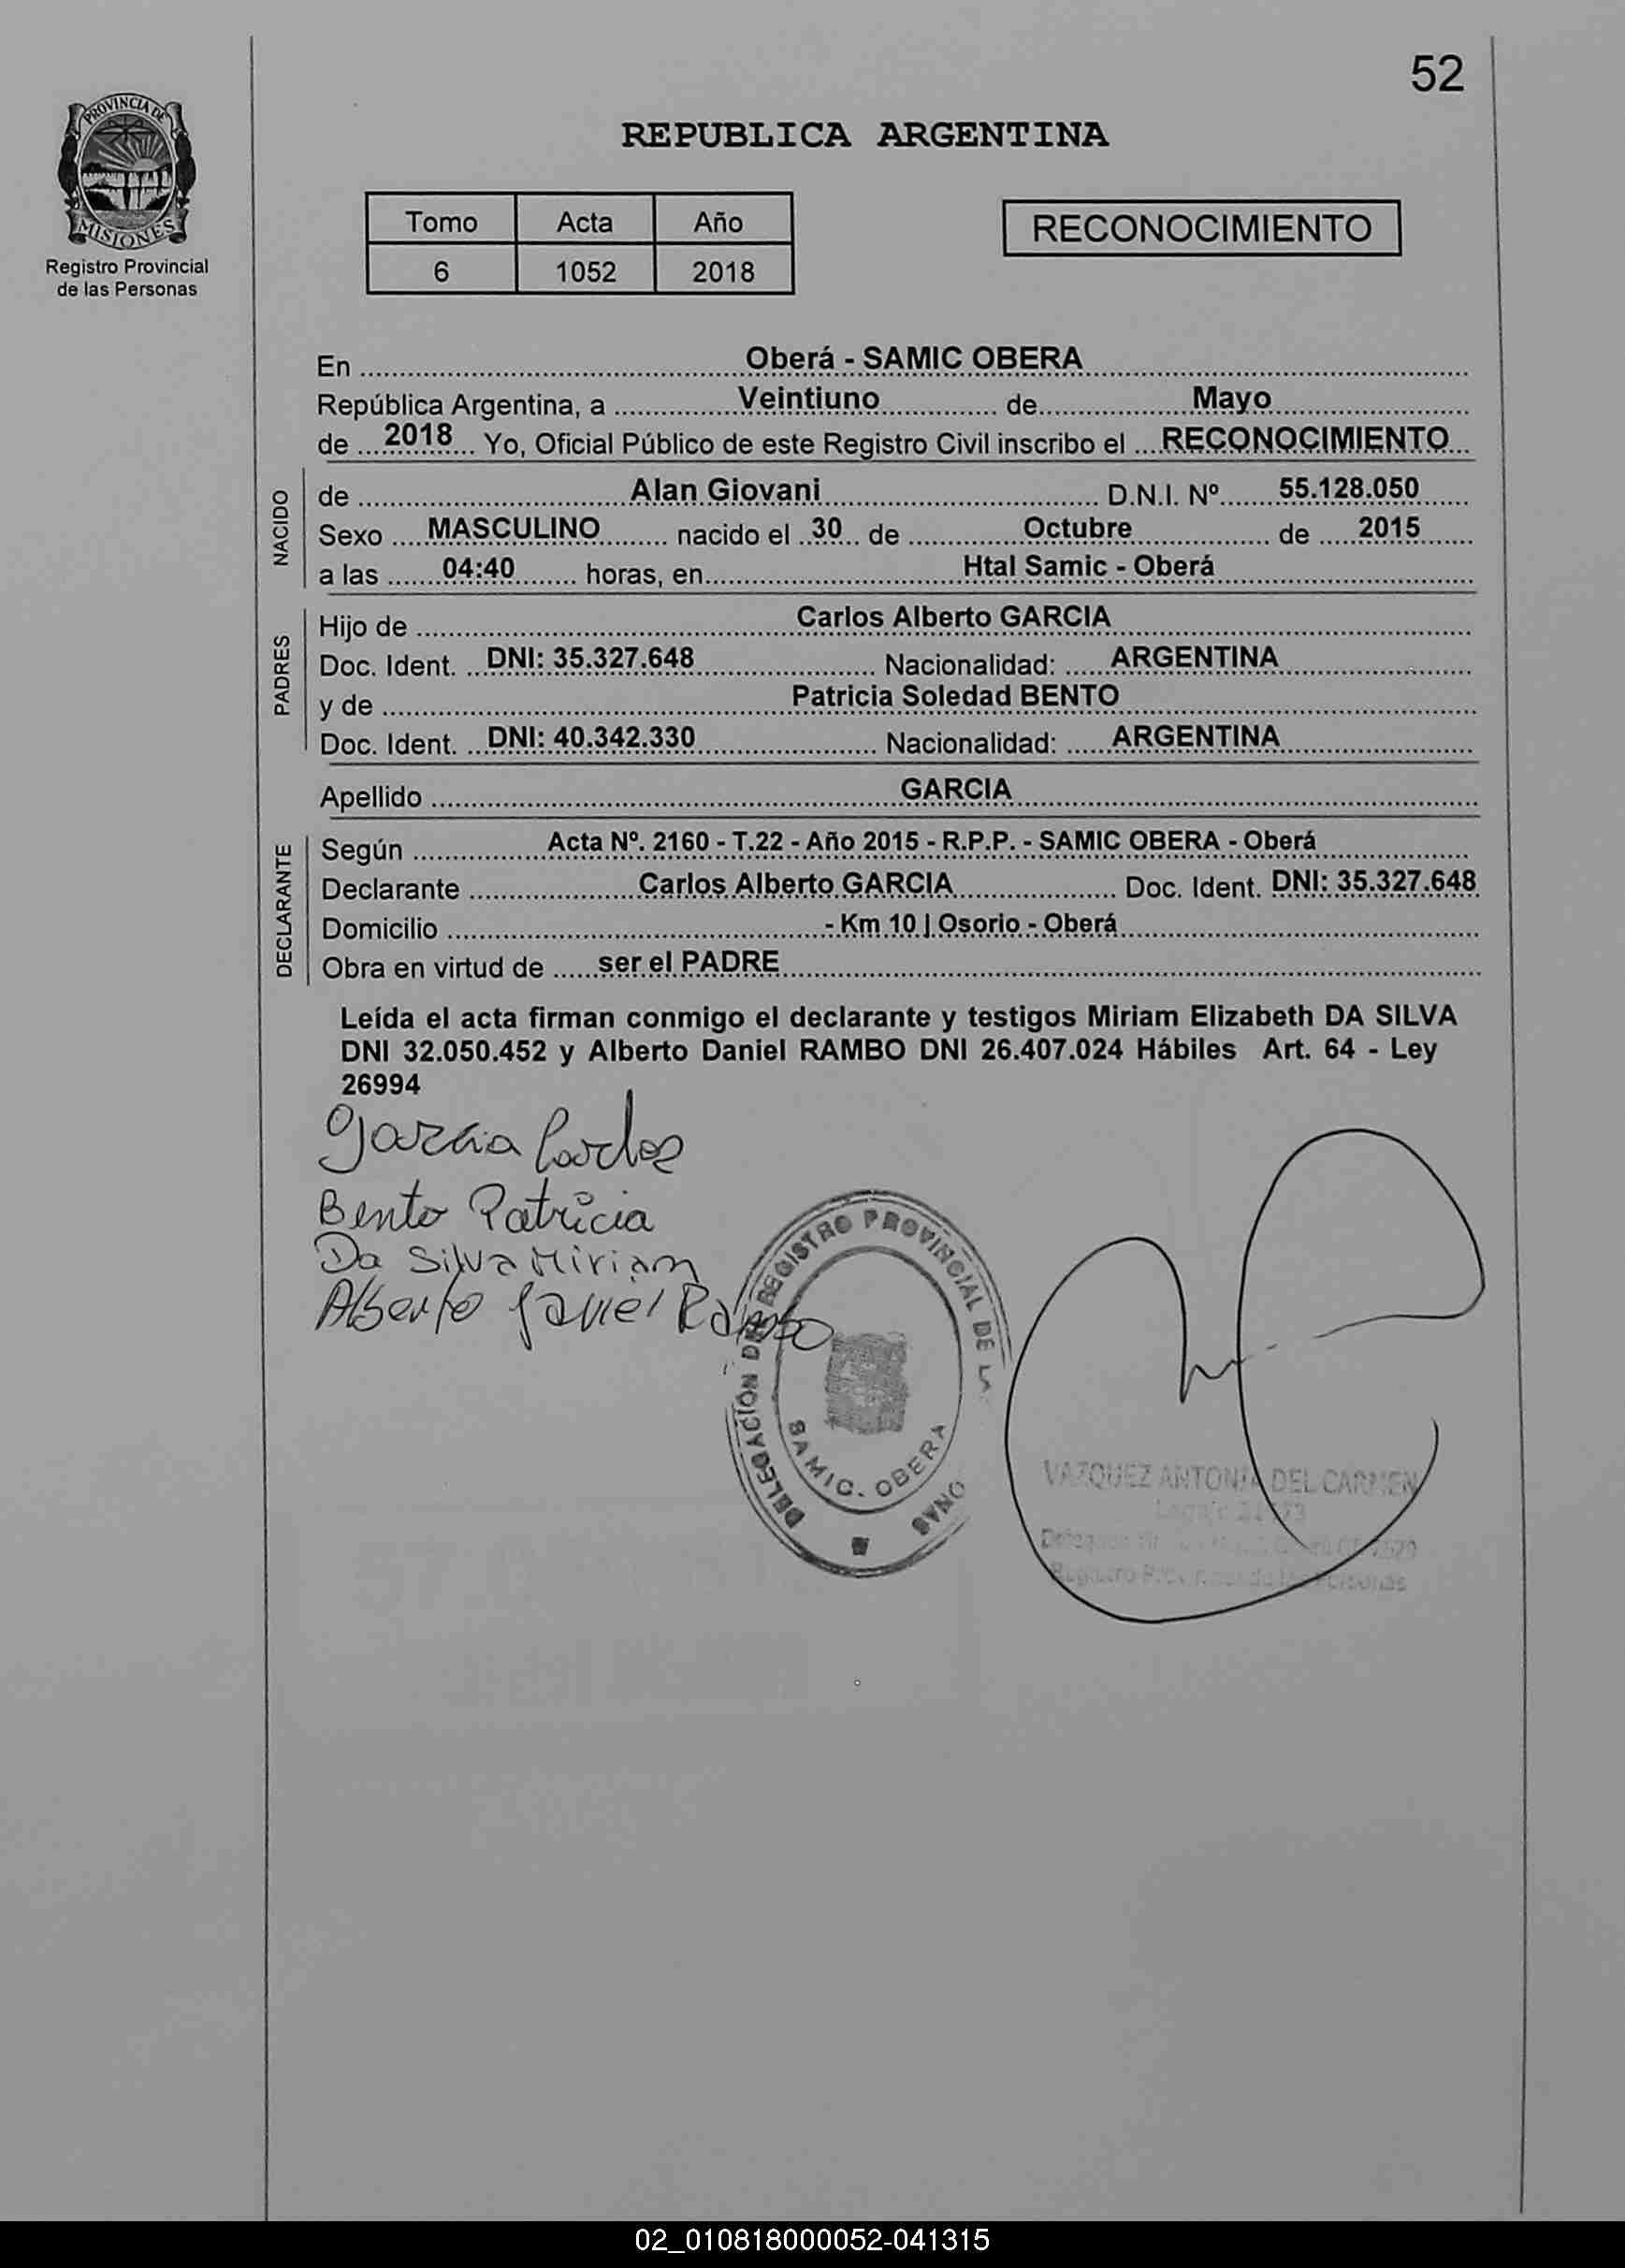 52
PROVINCIA DE
MISIONES
Registro Provincial
de las Personas
REPUBLICA ARGENTINA
Tomo Acta Año
6 1052 2018
RECONOCIMIENTO
En Oberá - SAMIC OBERA
República Argentina, a Veintiuno de Mayo
de 2018 Yo, Oficial Público de este Registro Civil inscribo el RECONOCIMIENTO
NACIDO
de Alan Giovani D.N.I. Nº 55.128.050
Sexo MASCULINO nacido el 30 de Octubre de 2015
a las 04:40 horas, en Htal Samic - Oberá
PADRES
Hijo de Carlos Alberto GARCIA
Doc. Ident. DNI: 35.327.648 Nacionalidad: ARGENTINA
y de Patricia Soledad BENTO
Doc. Ident. DNI: 40.342.330 Nacionalidad: ARGENTINA
Apellido GARCIA
DECLARANTE
Según Acta Nº. 2160 - T.22 - Año 2015 - R.P.P. - SAMIC OBERA - Oberá
Declarante Carlos Alberto GARCIA Doc. Ident. DNI: 35.327.648
Domicilio - Km 10 | Osorio - Oberá
Obra en virtud de ser el PADRE
Leída el acta firman conmigo el declarante y testigos Miriam Elizabeth DA SILVA
DNI 32.050.452 y Alberto Daniel RAMBO DNI 26.407.024 Hábiles Art. 64 - Ley
26994
Garcia Carlos
Bento Patricia
Da Silva Miriam
Alberto Rambo
DELEGACIÓN DEL REGISTRO PROVINCIAL DE LA
SAMIC. OBERA
VAZQUEZ ANTONIA DEL CARMEN
Registro de las Personas
02_010818000052-041315